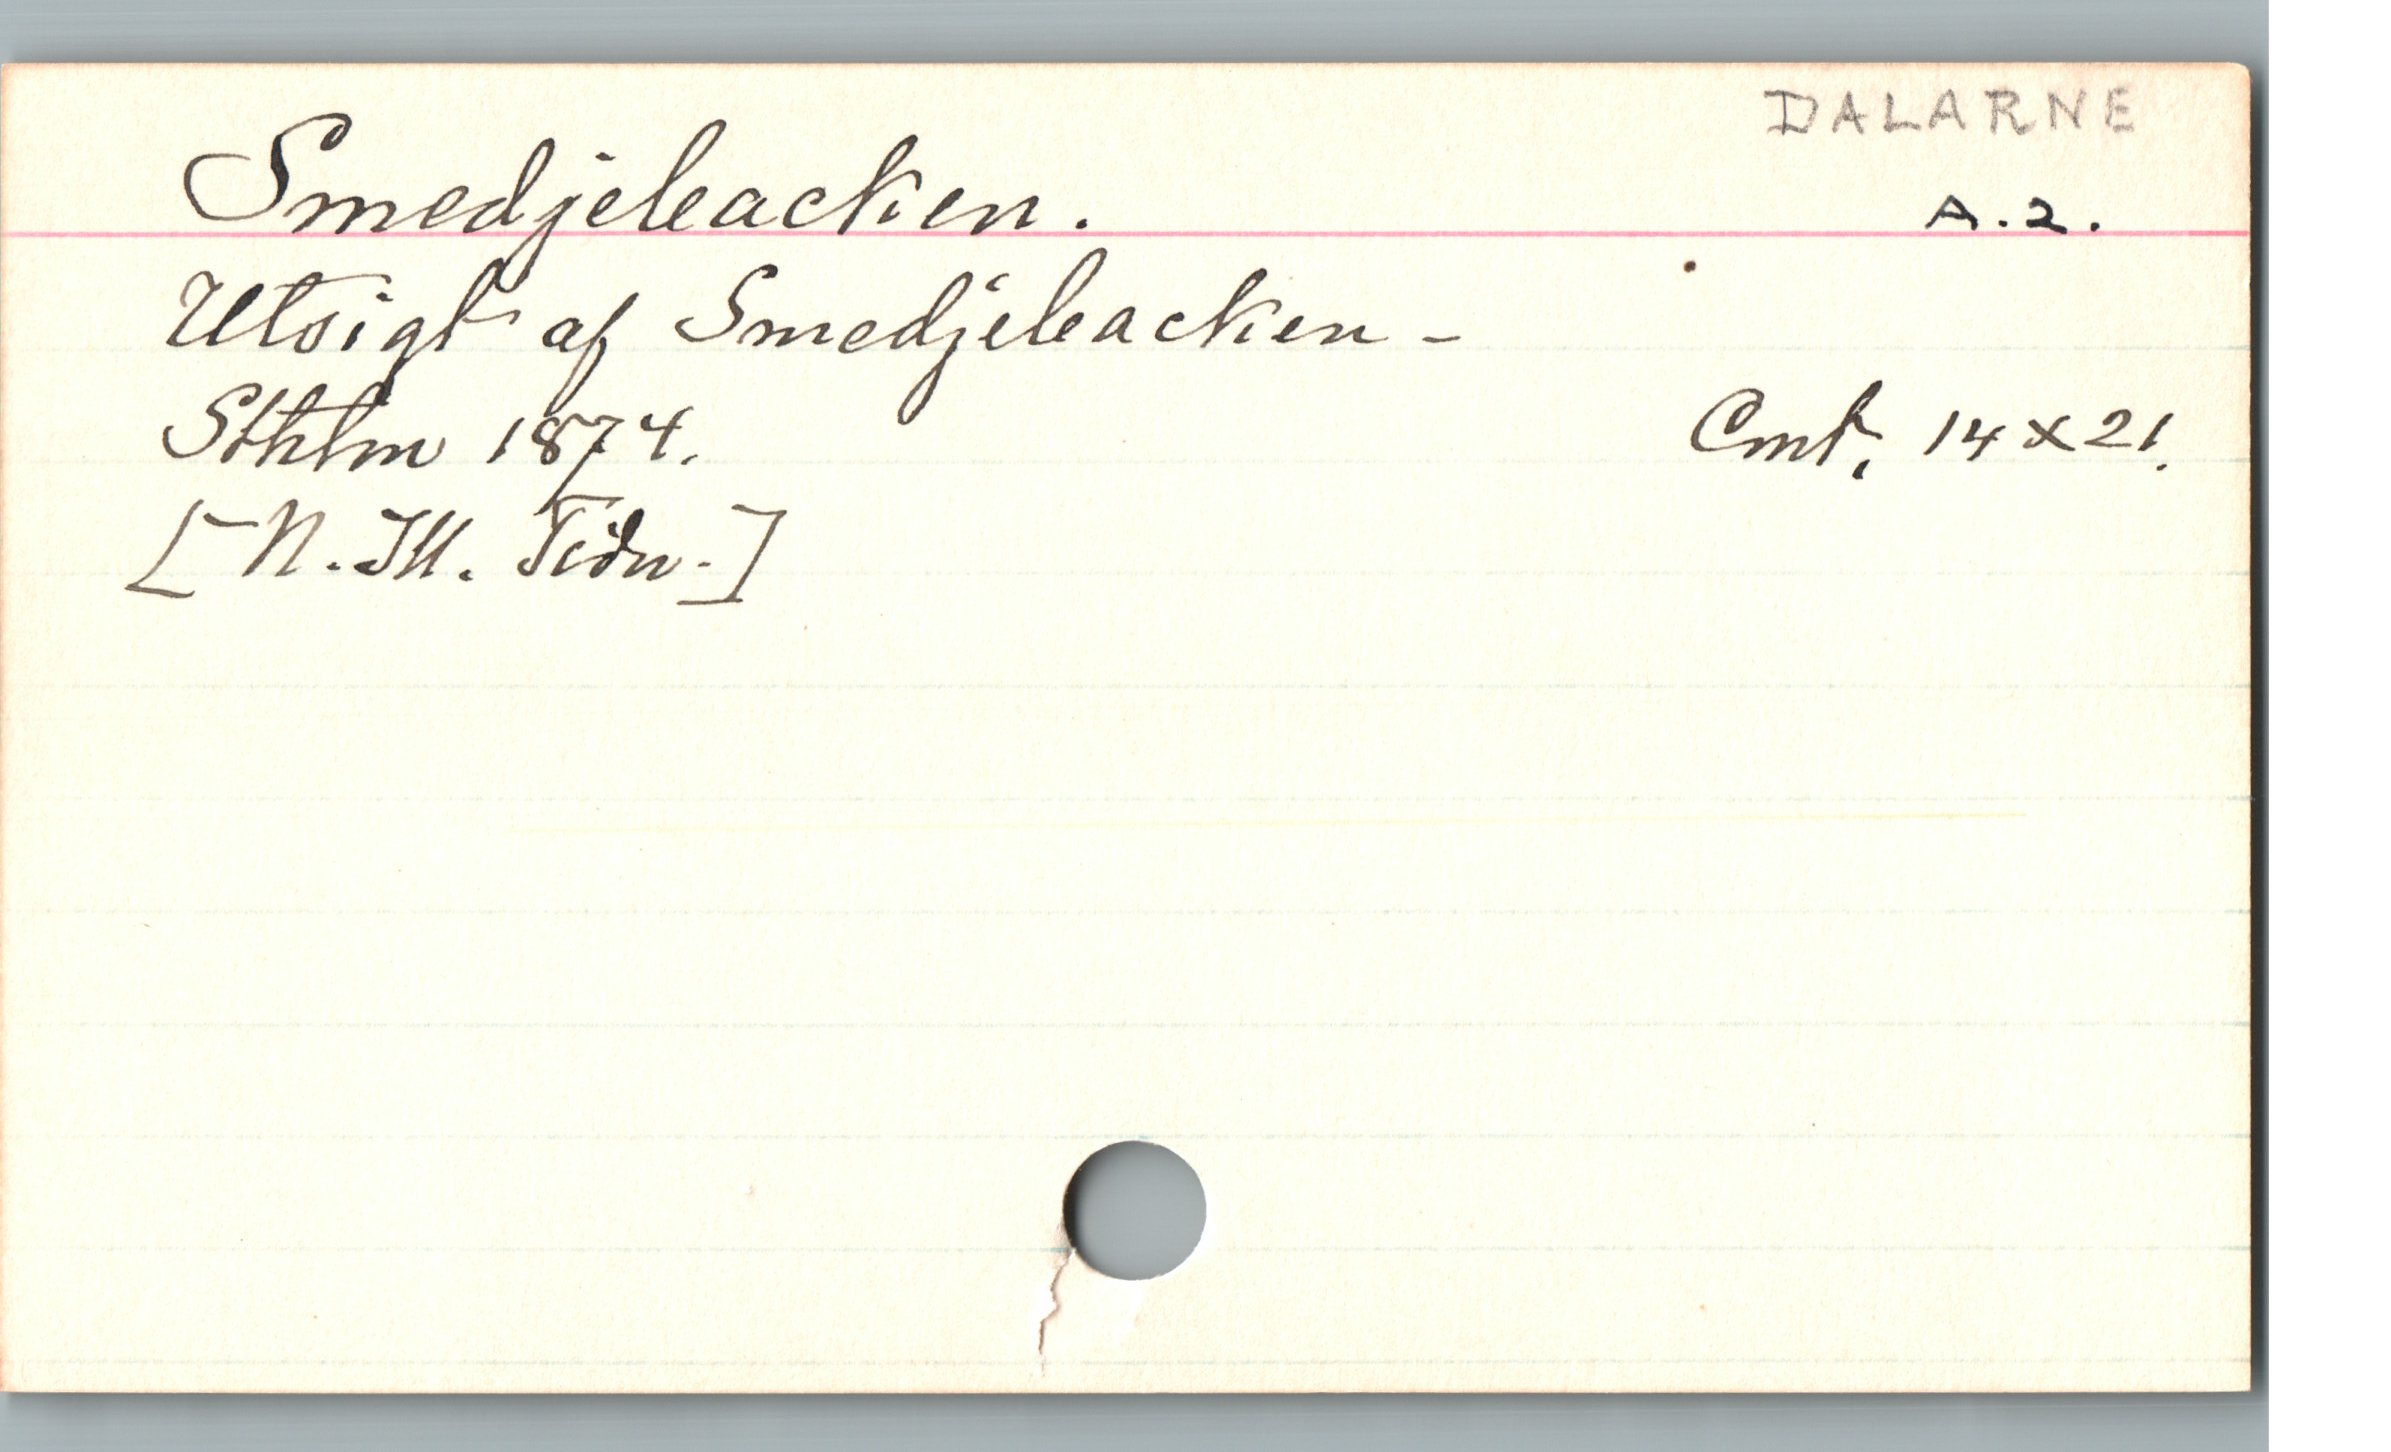 DALARNE
Smedjebacken. A.2.
Utsigt af Smedjebacken -
Sthlm 1874. Cmt. 14 x 21.
[N. Ill. Tidn.]